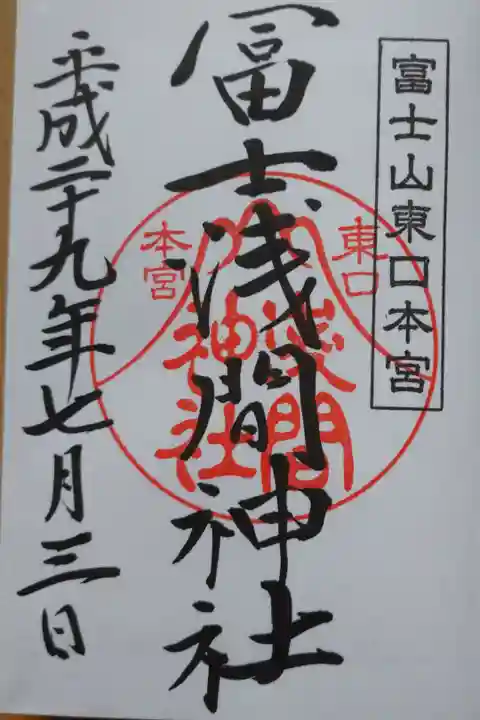 富士山東口本宮
冨士浅間神社
東口
本宮
浅間
神社
平成二十九年七月三日